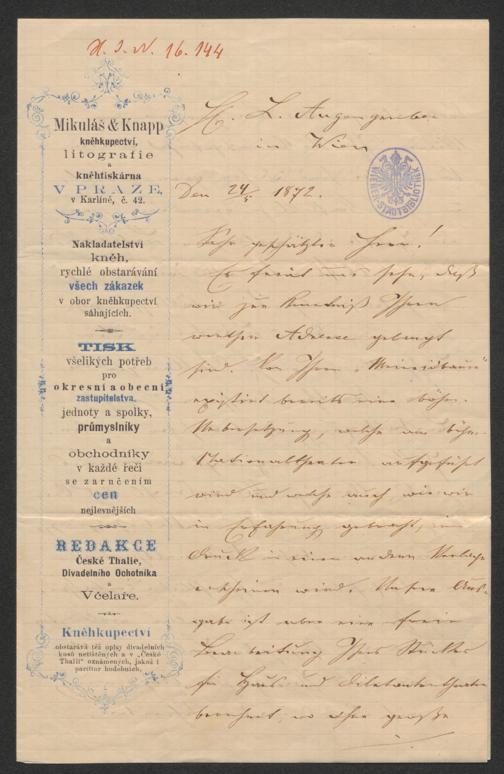 H. I. N. 16.144
Mikuláš & Knapp
kněhkupectví,
litografie
a
kněhtiskárna
V PRAZE,
v Karlíně, č. 42.
Nakladatelství
kněh,
rychlé obstarávání
všech zakázek
v obor kněhkupectví
sáhajících.
TISK
všelikých potřeb
pro
okresní a obecní
zastupitelstva,
jednoty a spolky,
průmyslníky
a
obchodníky
v každé řeči
se zaručením
cen
nejlevnějších
REDAKCE
České Thalie,
Divadelního Ochotníka
a
Včelaře.
Kněhkupectví
obstarává též opisy divadelních
kusů netištěných a v „České
Thalii“ oznámených, jakož i
partitur hudebních.
H. L. Anzengruber
in Wien
WIENER STADTBIBLIOTHEK
Den 24/5 1872.
Sehr geschätzter Herr!
Es freut uns sehr, daß
wir zur Kenntniß Ihrer
werthen Adresse gelangt
sind. Von Ihrem „Meineidbauer“
existirt bereits eine böhm.
Uebersetzung, welche am böhm.
Nationaltheater aufgeführt
wird und welche auch, wie wir
in Erfahrung gebracht, im
Druck in einem andern Verlage
erscheinen wird. Unsere Aus-
gabe ist aber eine freie
Bearbeitung Ihres Stückes
für Haus und Dilettantentheater
berechnet, wo ohne große